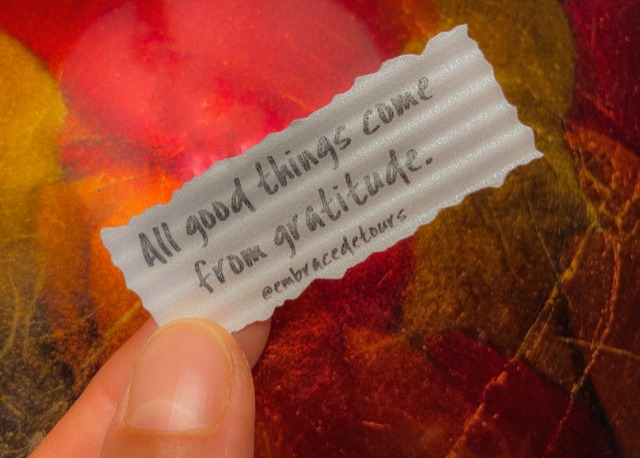 All good things come
from gratitude.
@embracedetours